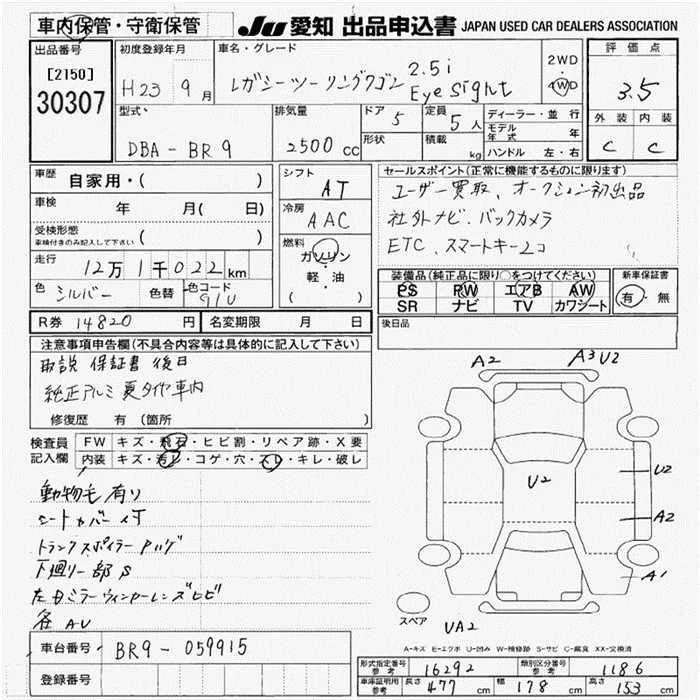 車内保管・守衛保管
JU 愛知 出品申込書 JAPAN USED CAR DEALERS ASSOCIATION
出品番号
[2150]
30307
初度登録年月
H23 9月
車名・グレード
レガシーツーリングワゴン 2.5i Eye Sight
2WD
・
4WD
評価点
3.5
外装 内装
C C
型式
DBA-BR9
排気量
2500cc
ドア 5
形状
定員 5人
積載 kg
ディーラー・並行
モデル年式 年
ハンドル 左・右
車歴 自家用・( )
車検 年 月( 日)
受検形態
車検付きのみ記入して下さい ( )
走行 12万1千022km
色 シルバー 色替 色コード 91U
シフト AT
冷房 AAC
燃料 ガソリン
軽・油
( )
セールスポイント(正常に機能するものに限ります)
ユーザー買取、オークション初出品
社外ナビ、バックカメラ
ETC、スマートキー2コ
装備品(純正品に限り○をつけてください)
PS PW エアB AW
SR ナビ TV カワシート
新車保証書
有・無
R券 14820円 名変期限 月 日
後日品
注意事項申告欄(不具合内容等は具体的に記入して下さい)
取説 保証書 後日
純正アルミ夏タイヤ車内
修復歴 有 (箇所 )
検査員記入欄
FW キズ・飛石・ヒビ割・リペア跡・X要
内装 キズ・汚レ・コゲ・穴・スレ・キレ・破レ
動物毛有り
シートカバー付
トランクスポイラー Pハゲ
下廻り一部S
左ドミラーウィンカーレンズヒビ
各AU
A2
A3 U2
U2
U2
A2
A1
UA2
スペア
A-キズ E-エクボ U-凹み W-補修跡 S-サビ C-腐食 XX-交換済
車台番号 BR9-059915
登録番号
形式指定番号 参考 16292 類別区分番号 参考 1186
車庫証明用 参考 長さ 477cm 幅 178cm 高さ 153cm